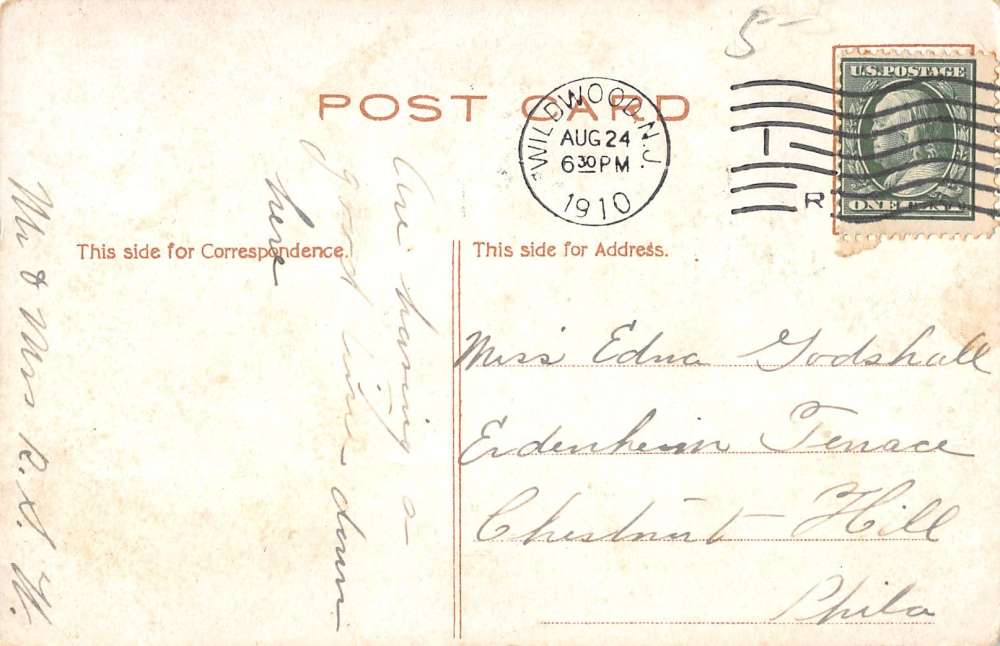 5-
POST CARD
WILDWOOD N.J.
AUG 24
6 30 PM
1910
R
U.S. POSTAGE
ONE CENT
This side for Correspondence.
This side for Address.
Are having a
good time down
here
Mr & Mrs R. S. H.
Miss Edna Godshall
Erdenheim Terrace
Chestnut Hill
Phila